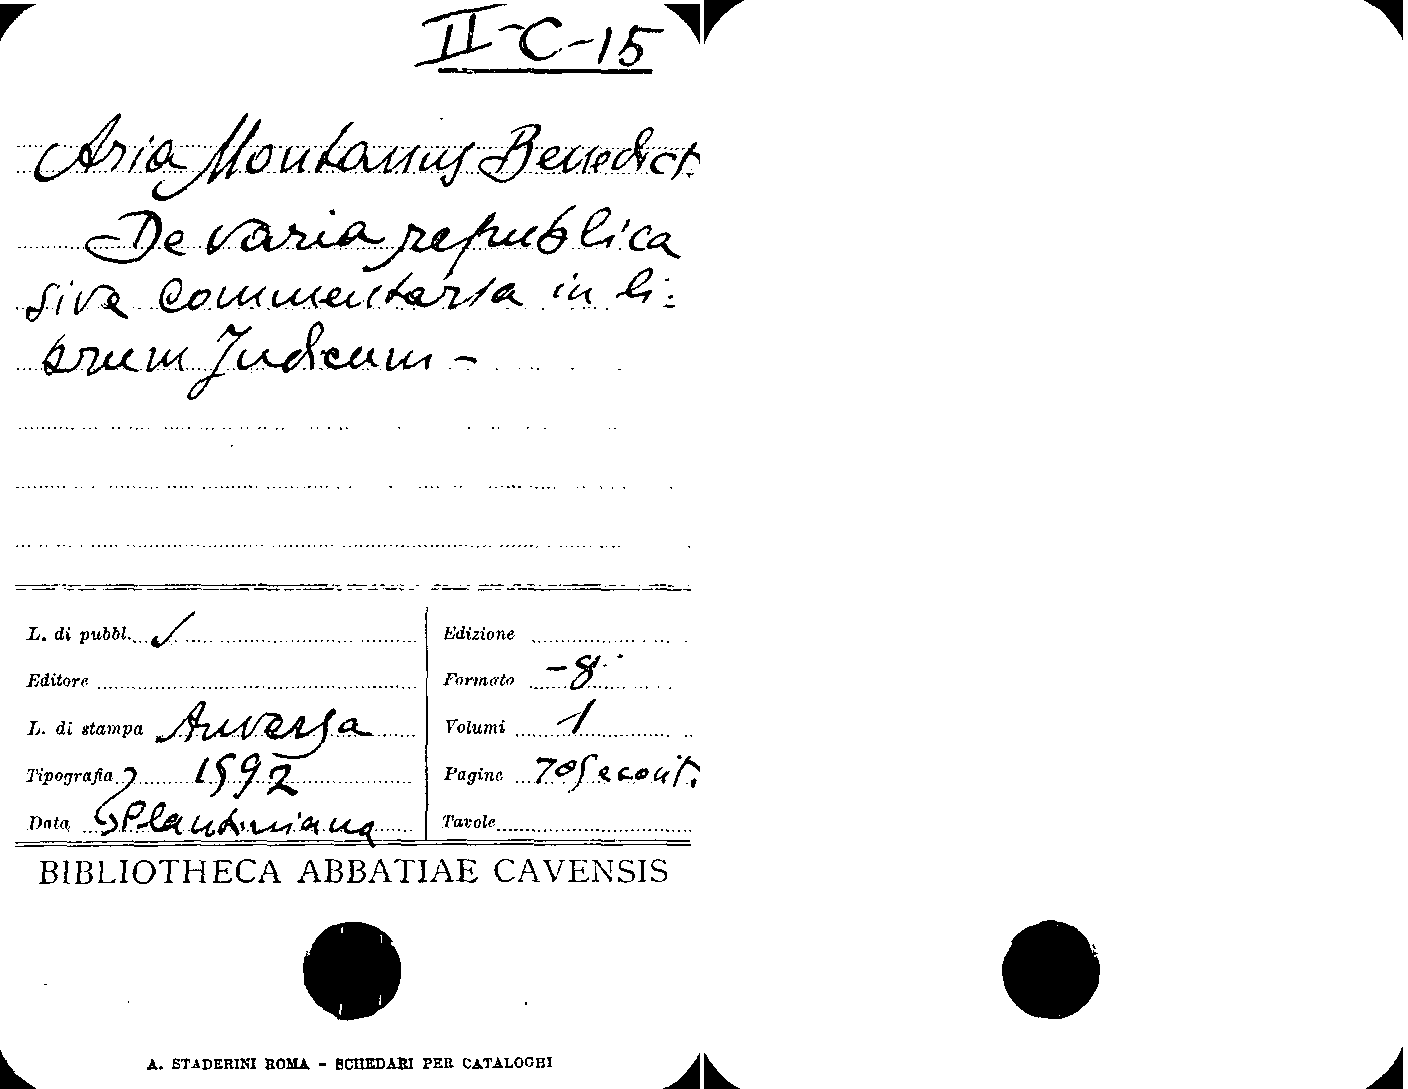 II-C-15
Aria Montanus Benedict.
De varia republica
sive Commentaria in li-
brum Judicum -
L. di pubbl.
Edizione
Editore
Formato -8°
L. di stampa Anversa
Volumi 1
Tipografia 1592
Pagine 705 e cont.
Data Plantiniana
Tavole
BIBLIOTHECA ABBATIAE CAVENSIS
A. STADERINI ROMA - SCHEDARI PER CATALOGHI